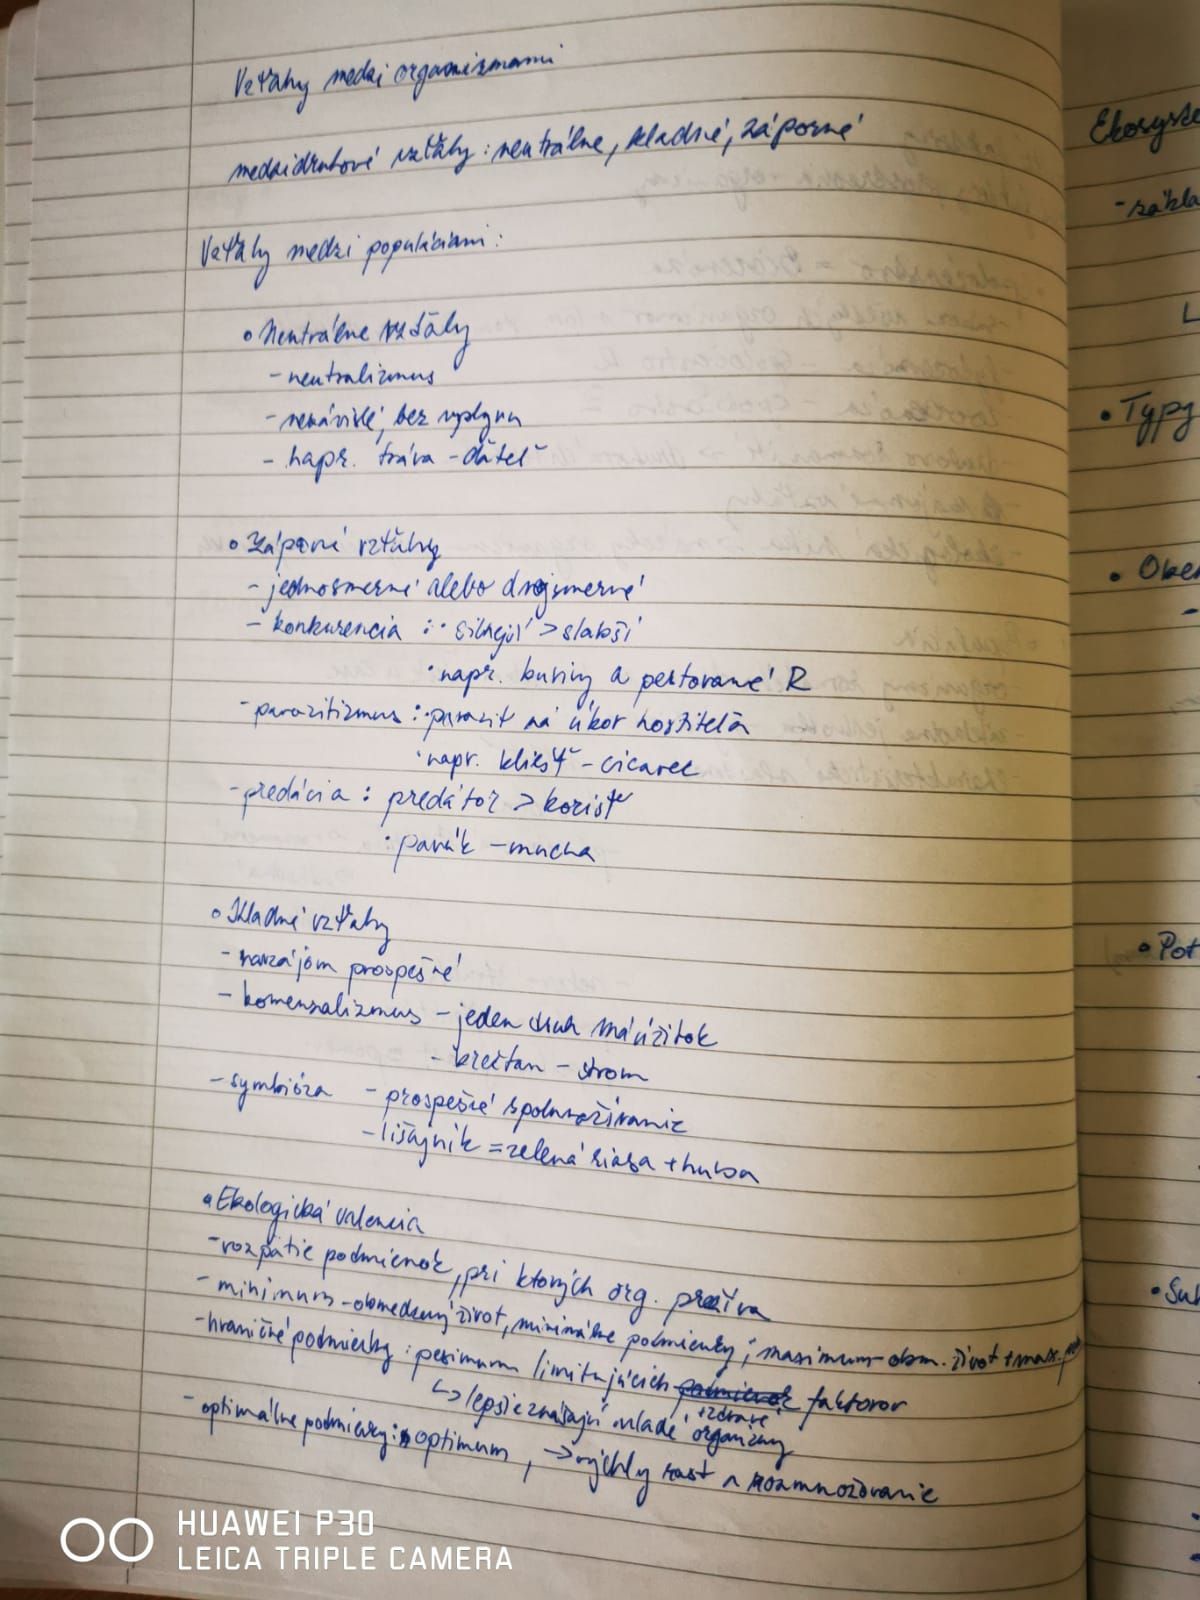 Vzťahy medzi organizmami
medzidruhové vzťahy: neutrálne, kladné, záporné
Vzťahy medzi populáciami:
• Neutrálne vzťahy
- neutralizmus
- nezávislé, bez vplyvu
- napr. tráva - ďateľ
• Záporné vzťahy
- jednosmerné alebo dvojsmerné
- konkurencia : · silnejší > slabší
· napr. buriny a pestované R
- parazitizmus : · parazit na úkor hostiteľa
· napr. kliešť - cicavec
- predácia : predátor > korisť
· pavúk - mucha
• Kladné vzťahy
- navzájom prospešné
- komenzalizmus - jeden druh má úžitok
- brečtan - strom
- symbióza - prospešné spolunažívanie
- lišajník = zelená riasa + huba
• Ekologická valencia
- rozpätie podmienok, pri ktorých org. prežíva
- minimum - obmedzený život, minimálne podmienky; maximum - obm. život + max.
- hraničné podmienky : pesimum limitujúcich faktorov
↳ lepšie znášajú mladé + zdravé organizmy
- optimálne podmienky: optimum, → rýchly rast a rozmnožovanie
Ekosyst
- zákla
L
• Typy
-
• Pot
HUAWEI P30
LEICA TRIPLE CAMERA